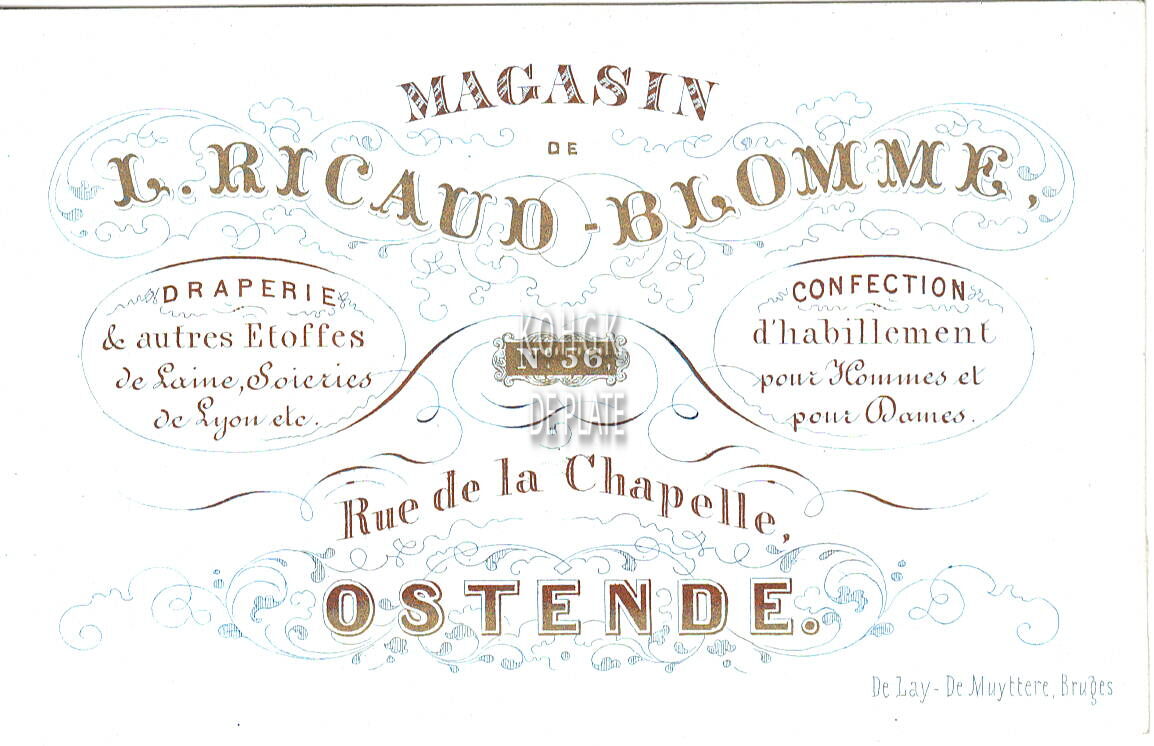 MAGASIN
DE
L. RICAUD-BLOMME,
DRAPERIE
& autres Etoffes
de Laine, Soieries
de Lyon etc.
CONFECTION
d'habillement
pour Hommes et
pour Dames.
KOHGK
No 56,
DE PLATE
Rue de la Chapelle,
OSTENDE.
De Lay - De Muyttere, Bruges